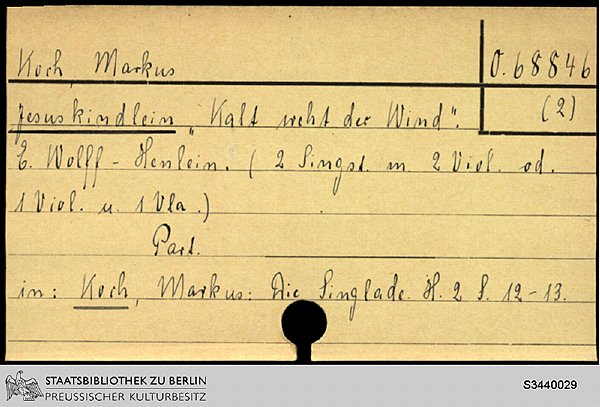 Koch, Markus
O. 68846
Jesuskindlein „Kalt weht der Wind".
(2)
E. Wolff-Henlein. (2 Singst. m. 2 Viol. od.
1 Viol. u. 1 Vla.)
Part.
in: Koch, Markus: Die Singlade. H. 2 S. 12-13.
STAATSBIBLIOTHEK ZU BERLIN
PREUSSISCHER KULTURBESITZ
S3440029